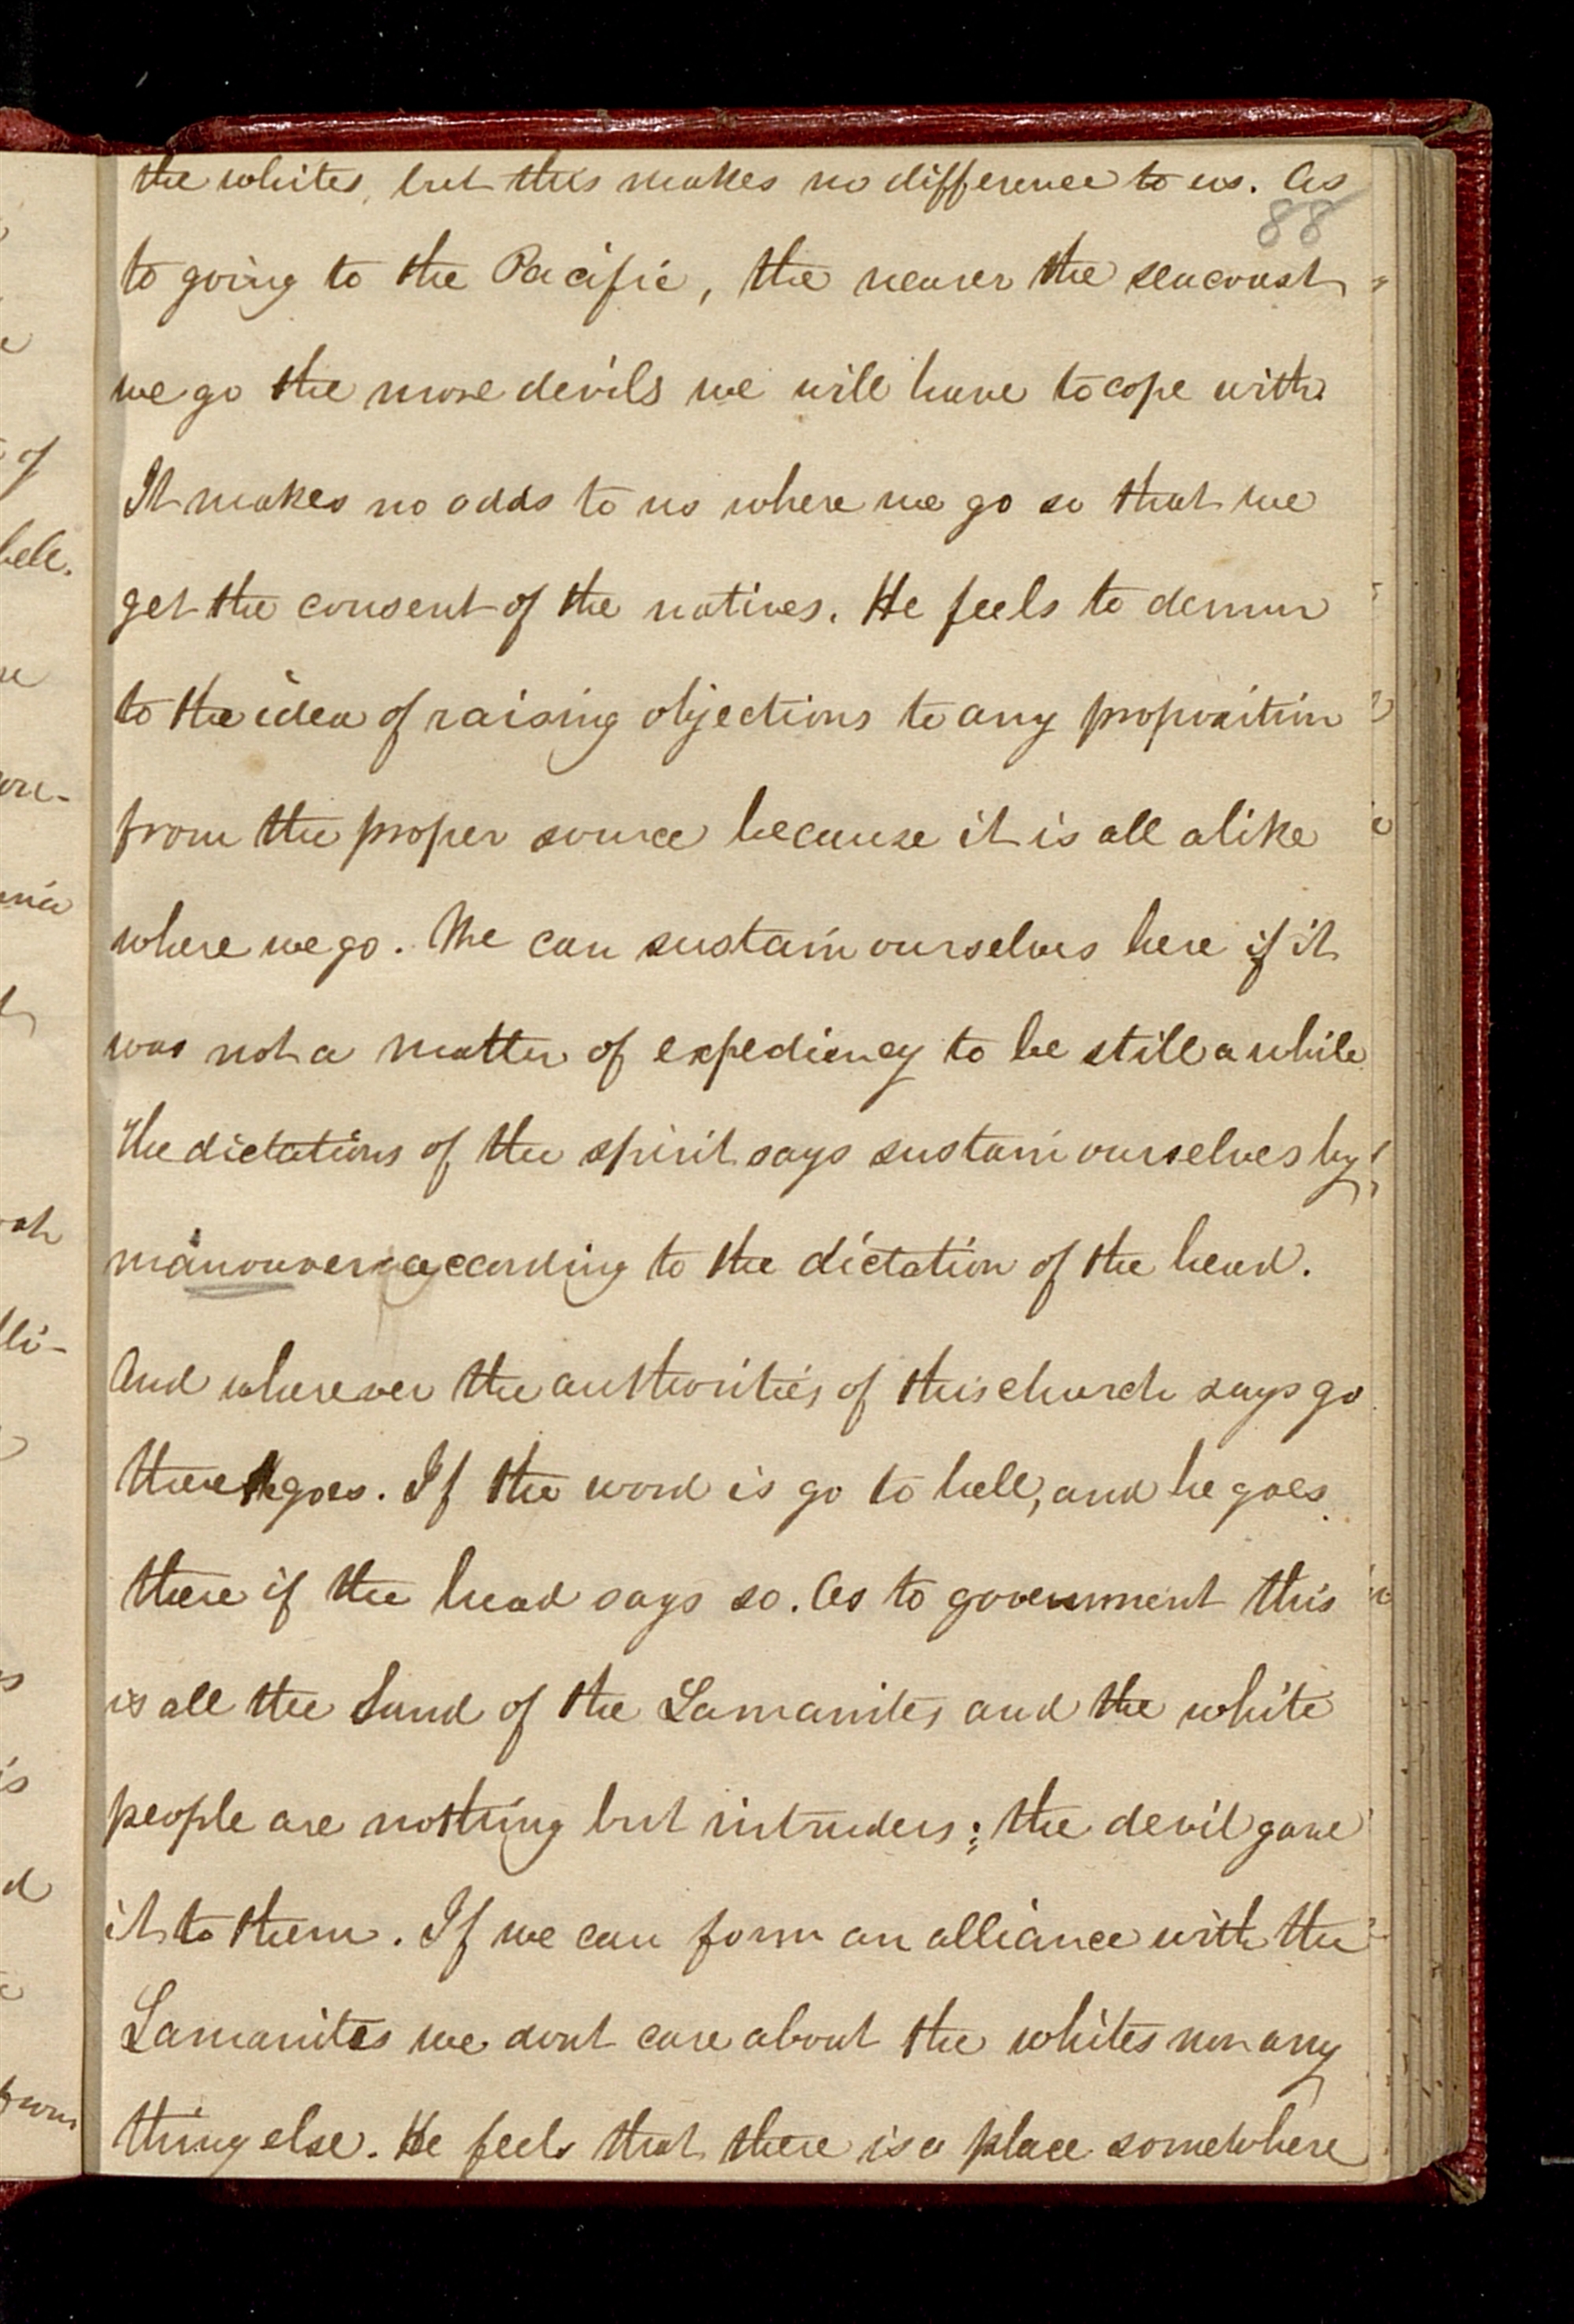 the whites, but this makes no difference to us. As
88
to going to the Pacific, the nearer the seacoast
we go the more devils we will have to cope with.
It makes no odds to us where we go so that we
get the consent of the natives. He feels to demur
to the idea of raising objections to any proposition
from the proper source because it is all alike
where we go. We can sustain ourselves here if it
was not a matter of expediency to be still a while
The dictations of the spirit says sustain ourselves by
manouver according to the dictation of the head.
And wherever the authorities of this church says go
there he goes. If the word is go to hell, and he goes
there if the head says so. As to government this
is all the Land of the Lamanites and the white
people are nothing but intruders; the devil gave
it to them. If we can form an alliance with the
Lamanites we dont care about the whites nor any
thing else. He feels that there is a place somewhere
of